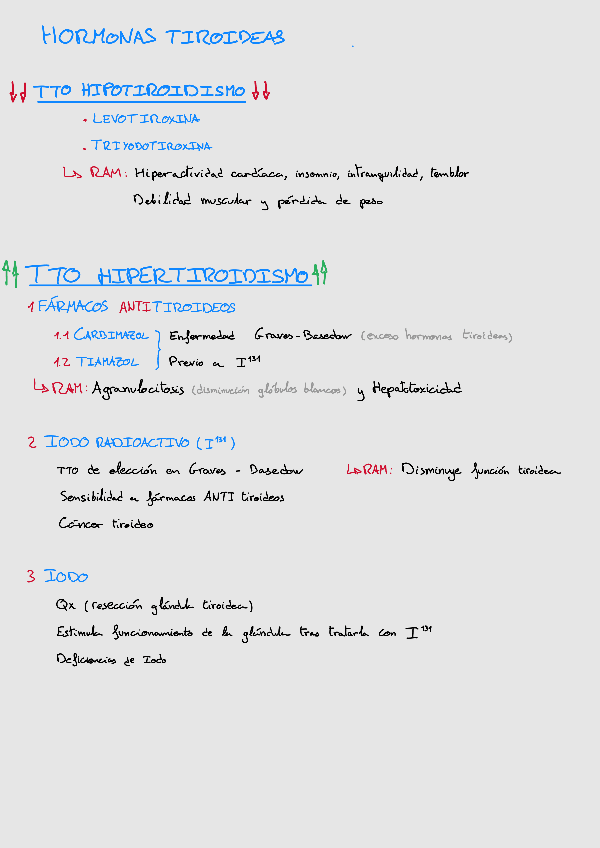 HORMONAS TIROIDEAS
↓↓ TTO HIPOTIROIDISMO ↓↓
• LEVOTIROXINA
• TRIYODOTIROXINA
↳ RAM: Hiperactividad cardíaca, insomnio, intranquilidad, temblor
Debilidad muscular y pérdida de peso
↑↑ TTO HIPERTIROIDISMO ↑↑
1 FÁRMACOS ANTITIROIDEOS
1.1 CARDIMAZOL } Enfermedad Graves-Basedow (exceso hormonas tiroideas)
1.2 TIAMAZOL } Previo a I¹³¹
↳ RAM: Agranulocitosis (disminución glóbulos blancos) y Hepatotoxicidad
2 IODO RADIOACTIVO (I¹³¹)
TTO de elección en Graves - Basedow ↳ RAM: Disminuye función tiroidea
Sensibilidad a fármacos ANTI tiroideos
Cáncer tiroideo
3 IODO
Qx (resección glándula tiroidea)
Estimula funcionamiento de la glándula tras tratarla con I¹³¹
Deficiencias de Iodo